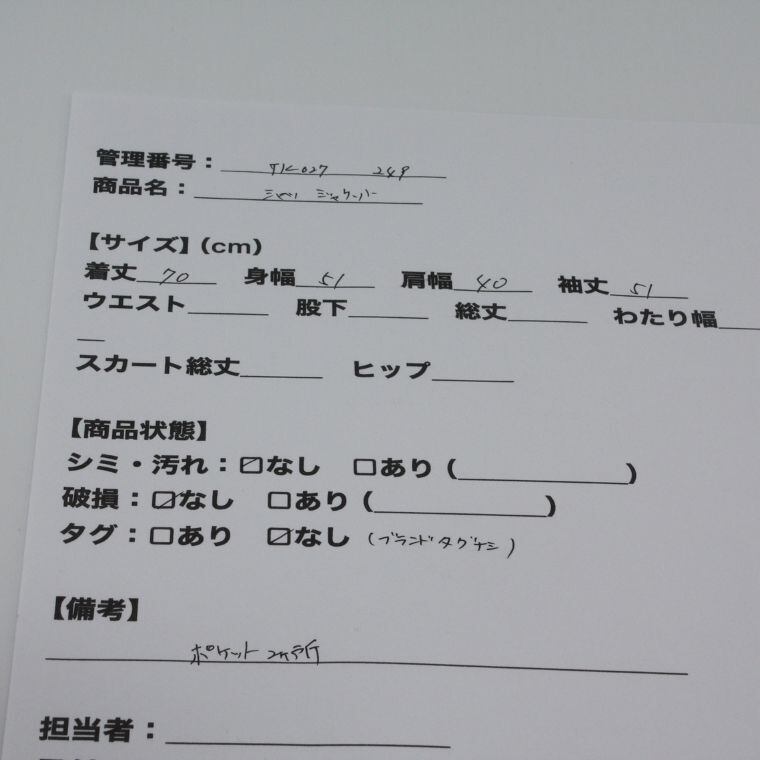 管理番号：TK-027 249
商品名：
【サイズ】(cm)
着丈 70 身幅 51 肩幅 40 袖丈 51
ウエスト______ 股下______ 総丈______ わたり幅___
__
スカート総丈______ ヒップ______
【商品状態】
シミ・汚れ：☑なし □あり (____________)
破損：☑なし □あり (____________)
タグ：□あり ☑なし (ブランドタグナシ)
【備考】
ポケット 2ヶ所
担当者：____________________